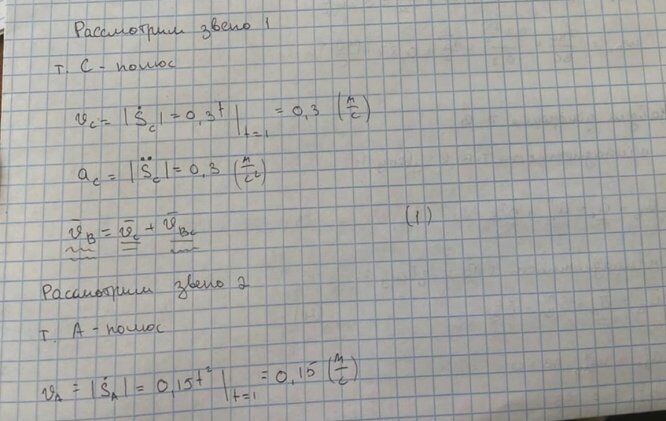 Рассмотрим звено 1
т. C - полюс
v_C = |Ṡ_C| = 0,3t |_{t=1} = 0,3 (м/с)
a_C = |S̈_C| = 0,3 (м/с²)
v̄_B = v̄_C + v̄_{BC} (1)
Рассмотрим звено 2
т. A - полюс
v_A = |Ṡ_A| = 0,15t² |_{t=1} = 0,15 (м/с)